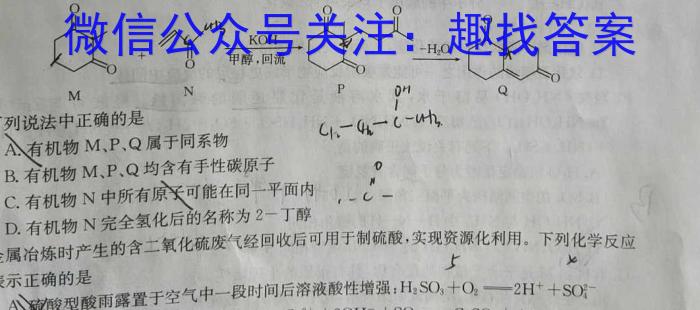 微信公众号关注：趣找答案
O
O
O
O
O
+
KOH
甲醇,回流
-H₂O
O
O
M
N
P
Q
OH
下列说法中正确的是
CH₃-CH₂-C-CH₃
A. 有机物 M、P、Q 属于同系物
B. 有机物 M、P、Q 均含有手性碳原子
O
C. 有机物 N 中所有原子可能在同一平面内
-C-
D. 有机物 N 完全氢化后的名称为 2-丁醇
金属冶炼时产生的含二氧化硫废气经回收后可用于制硫酸,实现资源化利用。下列化学反应
表示正确的是
A. 硫酸型酸雨露置于空气中一段时间后溶液酸性增强:H₂SO₃+O₂══2H⁺+SO₄²⁻